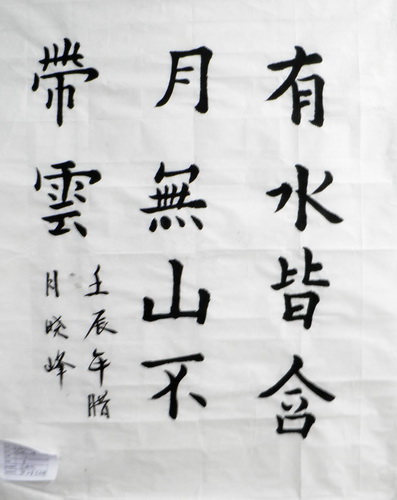 有水皆含
月無山不
帶雲
壬辰年腊
月晓峰